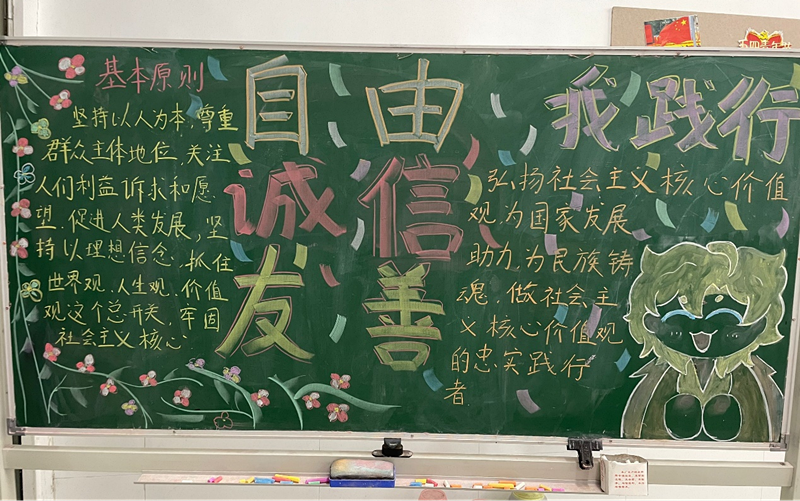 基本原则
坚持以人为本，尊重
群众主体地位，关注
人们利益诉求和愿
望，促进人类发展，坚
持以理想信念，抓住
世界观、人生观、价值
观这个总开关，牢固
社会主义核心
自由
诚信
友善
我践行
弘扬社会主义核心价值
观，为国家发展
助力，为民族铸
魂，做社会主
义核心价值观
的忠实践行
者